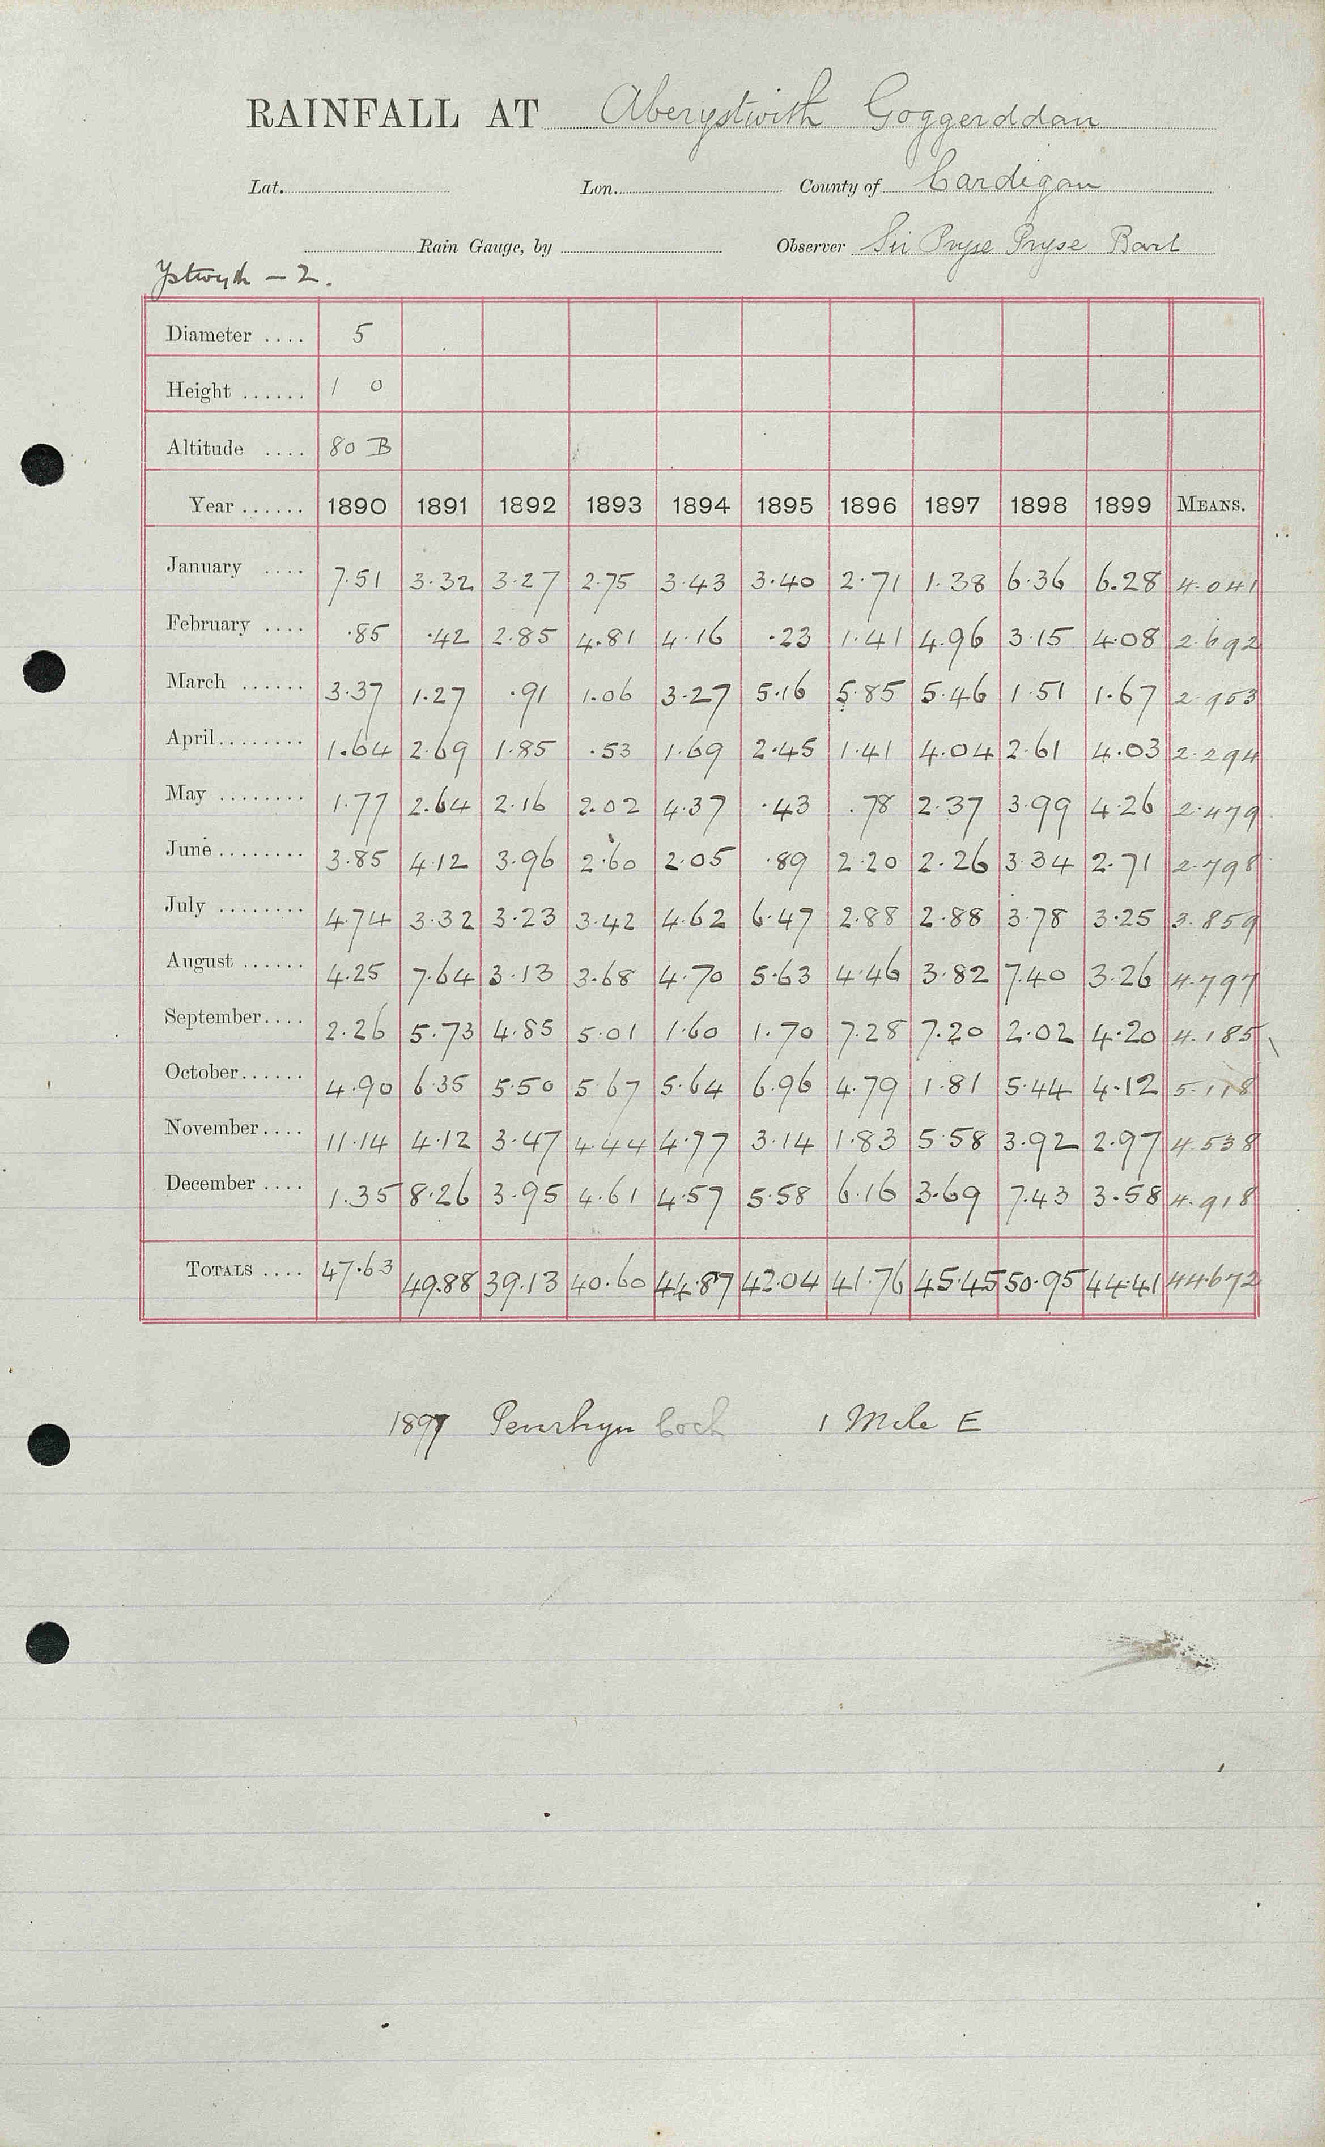 RAINFALL AT Aberystwith Goggerddan
Lat. Lon. County of Cardigan
Rain Gauge, by Observer Sir Pryse Pryse Bart
Ystwyth - 2.
Diameter .... 5
Height ...... 1 0
Altitude .... 80 B
Year ...... 1890 1891 1892 1893 1894 1895 1896 1897 1898 1899 MEANS.
January .... 7.51 3.32 3.27 2.75 3.43 3.40 2.71 1.38 6.36 6.28 4.041
February .... .85 .42 2.85 4.81 4.16 .23 1.41 4.96 3.15 4.08 2.692
March ...... 3.37 1.27 .91 1.06 3.27 5.16 5.85 5.46 1.51 1.67 2.953
April ........ 1.64 2.69 1.85 .53 1.69 2.45 1.41 4.04 2.61 4.03 2.294
May ........ 1.77 2.64 2.16 2.02 4.37 .43 .78 2.37 3.99 4.26 2.479
June ........ 3.85 4.12 3.96 2.60 2.05 .89 2.20 2.26 3.34 2.71 2.798
July ........ 4.74 3.32 3.23 3.42 4.62 6.47 2.88 2.88 3.78 3.25 3.859
August ...... 4.25 7.64 3.13 3.68 4.70 5.63 4.46 3.82 7.40 3.26 4.797
September .... 2.26 5.73 4.85 5.01 1.60 1.70 7.28 7.20 2.02 4.20 4.185
October ...... 4.90 6.35 5.50 5.67 5.64 6.96 4.79 1.81 5.44 4.12 5.118
November .... 11.14 4.12 3.47 4.44 4.77 3.14 1.83 5.58 3.92 2.97 4.538
December .... 1.35 8.26 3.95 4.61 4.57 5.58 6.16 3.69 7.43 3.58 4.918
TOTALS .... 47.63 49.88 39.13 40.60 44.87 42.04 41.76 45.45 50.95 44.41 44.672
1897 Penrhyn Coch 1 Mile E